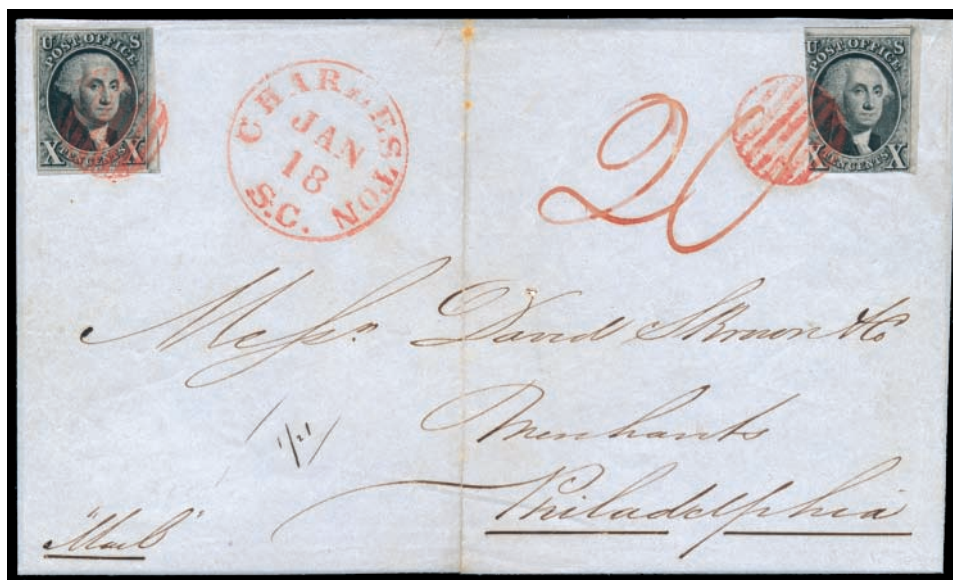 U POST OFFICE S
X TEN CENTS X
CHARLESTON
JAN
18
S.C.
20
U POST OFFICE S
X TEN CENTS X
Messrs. David S Brown & Co
Merchants
Philadelphia
1/21
"Mail"